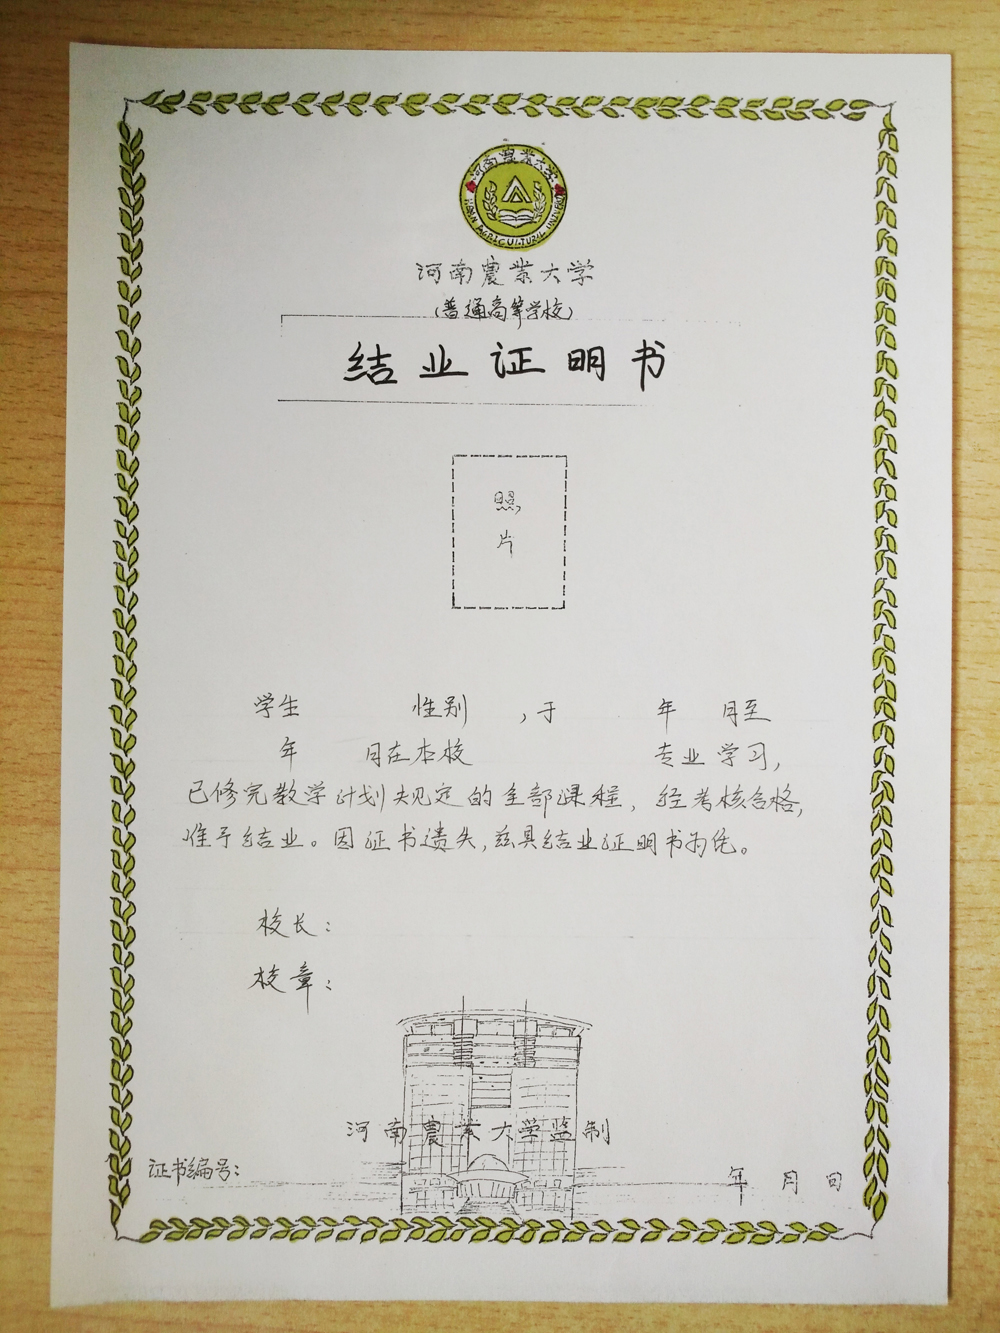 河南農業大学
HENAN AGRICULTURAL UNIVERSITY
河南農業大学
(普通高等学校)
结业证明书
照
片
学生 性别 ,于 年 月至
年 月在本校 专业学习,
已修完教学计划夫见定的全部课程,经考核合格,
准予结业。因证书遗失,兹具结业证明书为凭。
校长:
校章:
河南農業大学监制
证书编号:
年 月 日